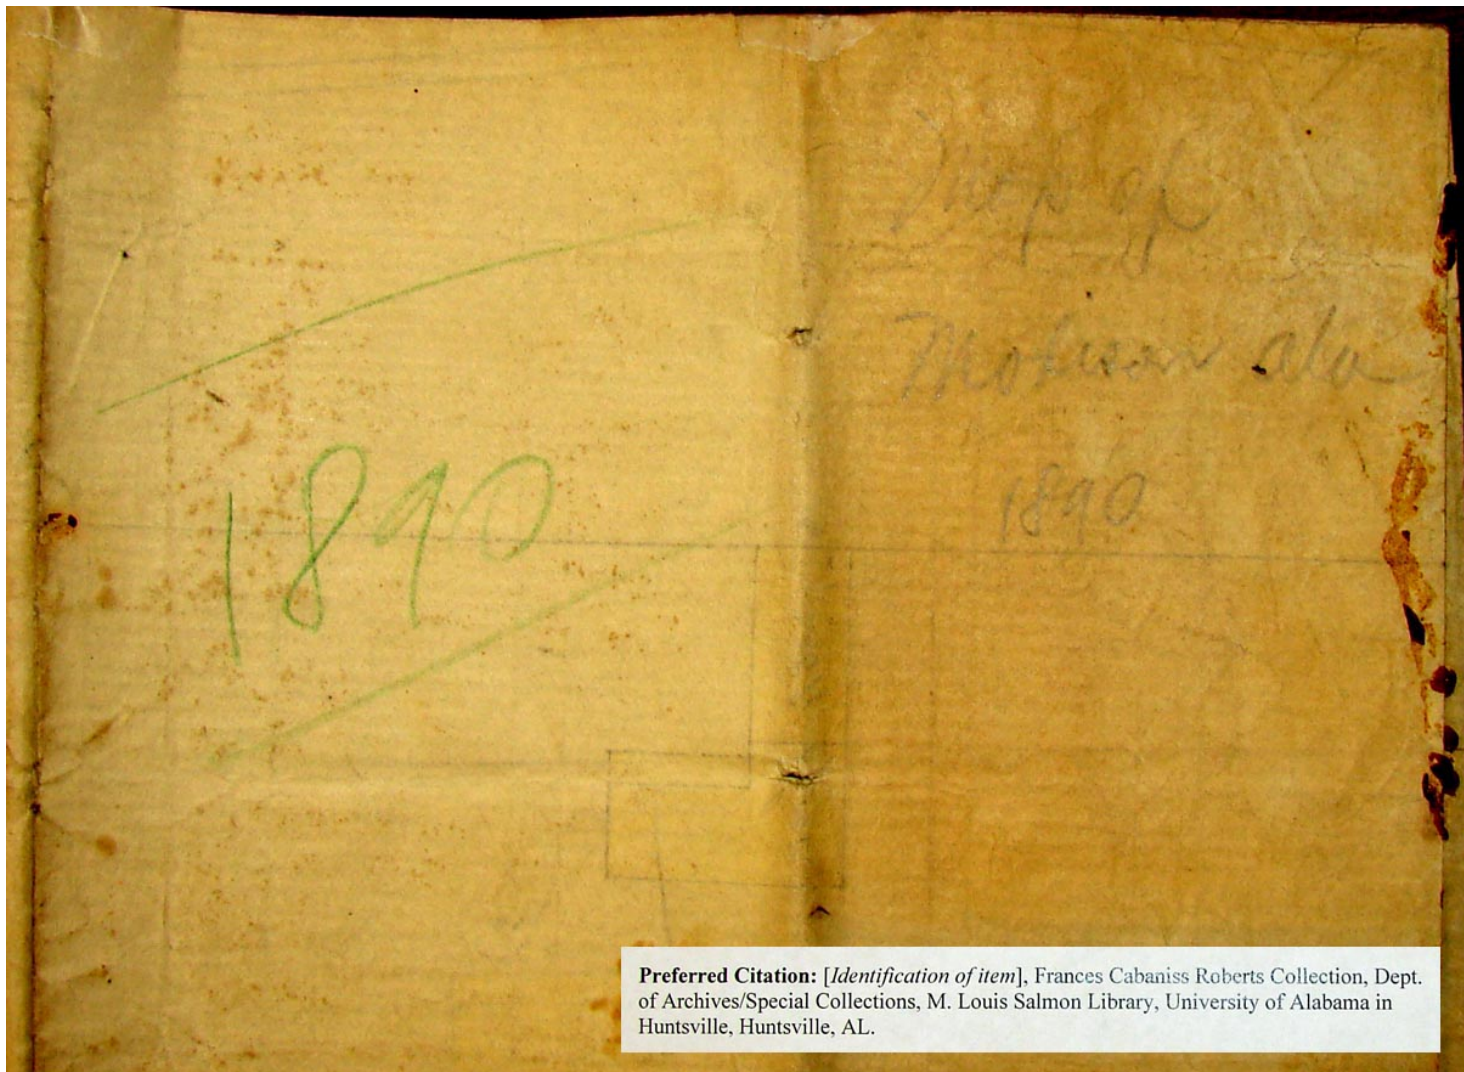 1890
Map of
Madison ala
1890
Preferred Citation: [Identification of item], Frances Cabaniss Roberts Collection, Dept.
of Archives/Special Collections, M. Louis Salmon Library, University of Alabama in
Huntsville, Huntsville, AL.